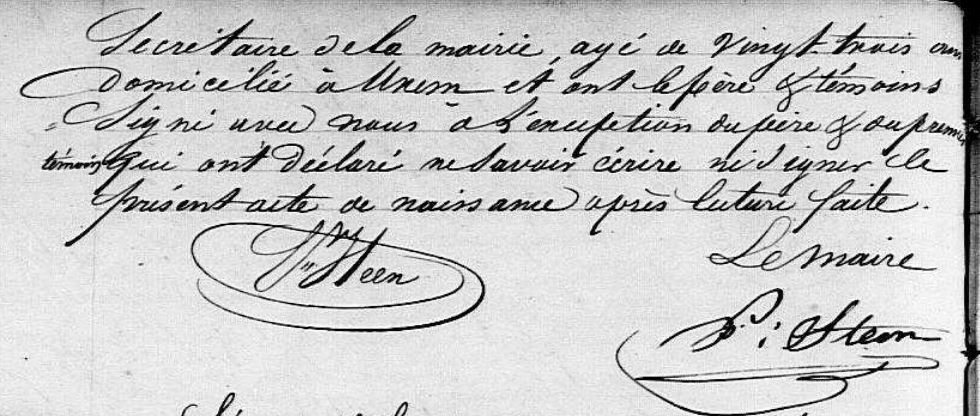 Secrétaire de la mairie, agé de vingt-trois ans
domicilié à Uxem et ont le père & témoins
Signé avec nous à l'exception du père & du premier
témoin qui ont déclaré ne savoir écrire ni signer le
présent acte de naissance après lecture faite.
Le Maire
Steen
P. Steen